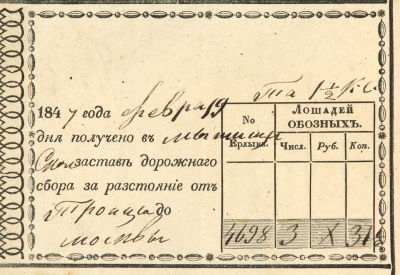 та 1½ К. С.
1847 года февра 19
дня получено въ Мытищи
заставѣ дорожнаго
сбора за разстояніе отъ
Троицы до
Москвы
No Ярлыка.
ЛОШАДЕЙ ОБОЗНЫХЪ.
Числ. Руб. Коп.
4698 3 X 31½